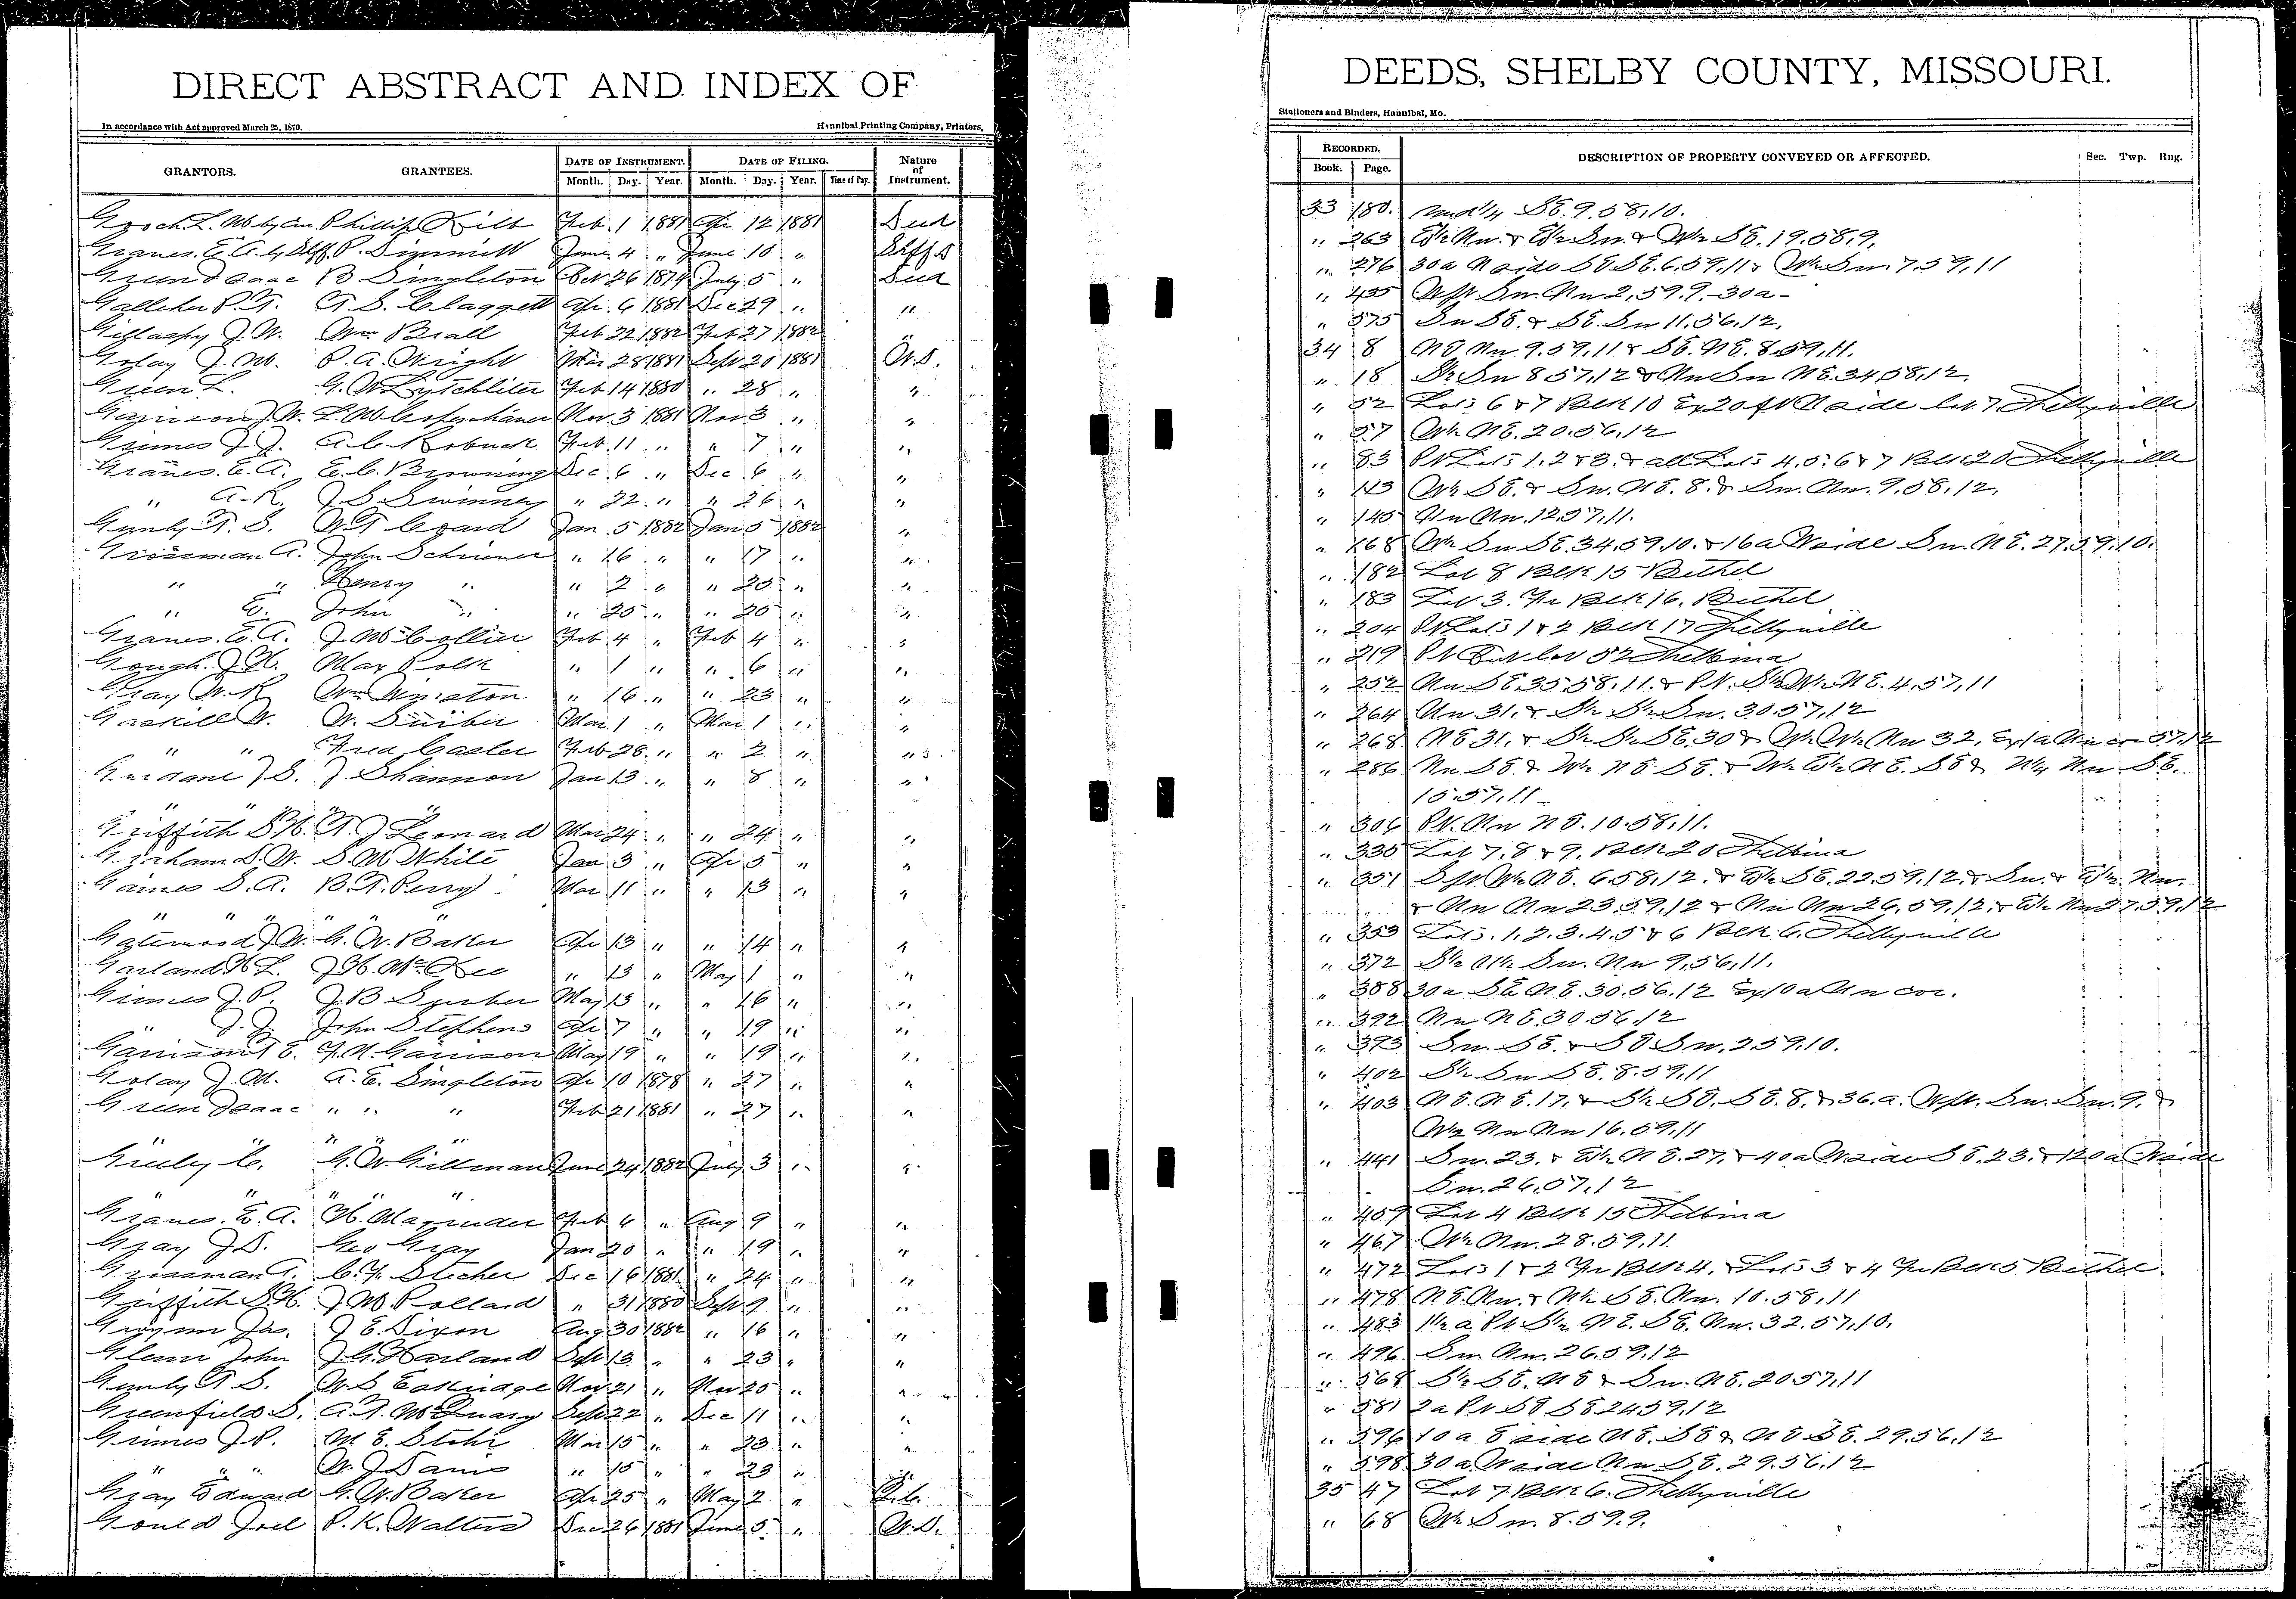 DIRECT ABSTRACT AND INDEX OF
In accordance with Act approved March 25, 1870. Hannibal Printing Company, Printers,
GRANTORS. GRANTEES. DATE OF INSTRUMENT. DATE OF FILING. Nature of Instrument.
Month. Day. Year. Month. Day. Year. Time of Day.
Gooch L. W. by Phillip Feb. 1 1881 Apr 12 1881 Deed
Graves. E. A. by Shff. P. Dimmitt June 4 " June 10 " Shff D
Green Isaac B Singleton Oct 26 1874 July 5 " Deed
Galleher P. T. T. S. Claggett Apr. 6 1881 Dec 29 " "
Gillaspy J. W. Wm Beall Feb 22 1882 Feb 27 1882 "
Golay J. M. P. A. Wright Mar 28 1881 Sept 20 1881 W. D.
Green L. G. W. Feb 14 1880 " 28 " "
Garrison J. W. L. M. Nov. 3 1881 Nov 3 " "
Grimes J. J. A. C. Robuck Feb. 11 " " 7 " "
Graves. E. A. E. C. Browning Dec. 6 " Dec 6 " "
" A. K. J S Swinney " 22 " " 26 " "
Gunby T. S. W T Cozard Jan. 5 1882 Jan 5 1882 "
Grossman A. John Schriener " 16 " " 17 " "
" " Henry " " 2 " " 25 " "
" E. John " " 25 " " 25 " "
Graves. E. A. J. M. Collier Feb 4 " Feb 4 " "
Gough. J. H. Max Polk " 1 " " 6 " "
Gray W. R. Wm Wigeton " 16 " " 23 " "
Gaskill W. W. Mar. 1 " Mar 1 " "
" " Fred Caster Feb 28 " " 2 " "
J. S. J. Shannon Jan 13 " " 8 " "
" " "
Griffith S. H. T. J Leonard Mar 24 " " 24 " "
Graham D. W. S. M White Jan 3 " Apr 5 " "
Gaines S. A. B. T. Perry Mar 11 " " 13 " "
" " " " "
Gatewood J W. G. W. Baker Apr 13 " " 14 " "
Garland H L. J H. McKee " 13 " May 1 " "
Grimes J. P. J. B May 13 " " 16 " "
" J. J. John Stephens Apr 7 " " 19 " "
Garrison T E. F. M. Garrison May 19 " " 19 " "
Golay J. M. A. E. Singleton Apr 10 1878 " 27 " "
Green Isaac " " " Feb 21 1881 " 27 " "
" " " " "
Greely C. G. W. Gillman June 24 1882 July 3 " "
" " " " "
Graves. E. A. H. Magruder Feb 6 " Aug 9 " "
Gray J D. Geo Gray Jan 20 " " 19 " "
Grossman A. C. F. Stecher Dec 16 1881 " 24 " "
Griffith S H. J W Pollard " 31 1880 Sept 9 " "
Gwynn Jas. J E. Dixon Aug 30 1882 " 16 " "
Glenn John J. G. Harland Sept 13 " " 23 " "
Gunby T S. W. S Eskridge Nov 21 " Nov 25 " "
Greenfield S. A. T. McQuary Sept 22 " Dec 11 " "
Grimes J. P. M E. Stohr Mar 15 " " 23 " "
" " " W. J Davis " 15 " " 23 " "
Gray Edward G. W. Baker Apr 25 " May 2 " Q. C.
Gould Joel P. K. Walters Dec 26 1881 June 5 " W. D.
DEEDS, SHELBY COUNTY, MISSOURI.
Stationers and Binders, Hannibal, Mo.
RECORDED. DESCRIPTION OF PROPERTY CONVEYED OR AFFECTED. Sec. Twp. Rng.
Book. Page.
33 180. und 1/4 SE. 9.58.10.
" 263 E1/2 Nw. & E1/2 Sw. & W1/2 SE. 19.58.9.
" 276 30a N side SE SE. 6.59.11 & W1/2 Sw. 7.59.11
" 435 W pt Sw. Nw 2,59.9. 30a -
" 575 Sw SE. & SE. Sw 11.56.12.
34 8 NE. Nw 9.59.11 & SE. NE. 8.59.11.
" 18 S1/2 Sw 8 57.12 & Nw Sw NE. 34.58.12.
" 52 Lots 6 & 7 Blk 10 Ex 20 ft N side lot 7 Shelbyville
" 57 W1/2 NE. 20.56.12
" 83 Pt Lots 1. 2 & 3. & all Lots 4. 5. 6 & 7 Blk 20 Shelbyville
" 113 W1/2 SE. & Sw. NE. 8. & Sw. Nw. 9.58.12.
" 145 Nw Nw. 12.57.11.
" 168 W1/2 Sw SE. 34.59.10. & 16a W side Sw. NE. 27.59.10.
" 182 Lot 8 Blk 15 Bethel
" 183 Lot 3. Fr Blk 16. Bethel
" 204 Pt Lots 1 & 2 Blk 17 Shelbyville
" 219 Pt Out lot 52 Shelbina
" 252 Nw SE 35 58.11. & Pt. S1/2 W1/2 NE. 4.57.11
" 264 Nw 31. & S1/2 S1/2 Sw. 30.57.12
" 268 NE 31. & S1/2 S1/2 SE. 30 & W1/2 W1/2 Nw 32. Ex 1a Nw cor 57.12
" 286 Nw SE. & W1/2 NE. SE. & W1/2 E1/2 NE. SE & Nw SE.
15.57.11
" 306 Pt. Nw NE. 10.58.11.
" 330 Lot 7. 8 & 9. Blk 20 Shelbina
" 351 S pt W1/2 NE. 6.58.12. & E1/2 SE. 22.59.12. & Sw. & E1/2 Nw.
& Nw Nw 23.59.12 & Nw Nw 26.59.12. & E1/2 Nw 27.59.12
" 353 Lots. 1. 2. 3. 4. 5 & 6 Blk 6. Shelbyville
" 372 S1/2 N1/2 Sw. Nw 9.56.11.
" 388 30a SE NE. 30.56.12 Ex 10a Nw cor.
" 392 Nw NE. 30.56.12
" 393 Sw. SE. & SE Sw. 2.59.10.
" 402 S1/2 Sw SE. 8.59.11
" 403 NE. NE. 17. & S1/2 SE. SE. 8. & 36.a. W pt. Sw. Sw. 9. &
W1/2 Nw Nw 16.59.11
" 441 Sw. 23. & E1/2 NE. 27. & 40a W side SE. 23. & 120a N side
Sw. 26.57.12
" 459 Lot 4 Blk 15 Shelbina
" 467 W1/2 Nw. 28.59.11
" 472 Lots 1 & 2 Fr Blk 4. & Lots 3 & 4 Fr Blk 5 Bethel.
" 478 NE. Nw. & W1/2 SE. Nw. 10.58.11
" 483 1 1/2 a Pt S1/2 NE. SE. Nw. 32.57.10.
" 496 Sw. Nw. 26.59.12
" 568 S1/2 SE. NE & Sw. NE. 20 57.11
" 581 2a Pt SE SE 24 59.12
" 596 10 a E side NE. SE & NE SE. 29.56.12
" 598 30 a W side Nw SE. 29.56.12
35 47 Lot 7 Blk 6. Shelbyville
" 68 W1/2 Sw. 8.59.9.